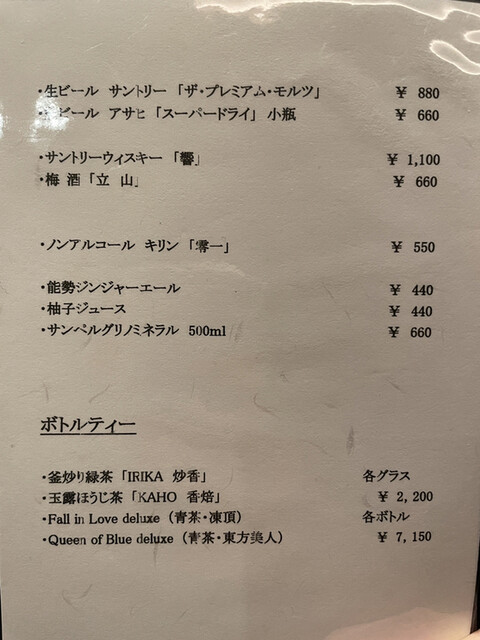 ・生ビール サントリー 「ザ・プレミアム・モルツ」 ￥ 880
ビール アサヒ 「スーパードライ」 小瓶 ￥ 660
・サントリーウィスキー 「響」 ￥ 1,100
・梅 酒 「立 山」 ￥ 660
・ノンアルコール キリン 「零一」 ￥ 550
・能勢ジンジャーエール ￥ 440
・柚子ジュース ￥ 440
・サンペルグリノミネラル 500ml ￥ 660
ボトルティー
・釜炒り緑茶 「IRIKA 炒香」 各グラス
・玉露ほうじ茶 「KAHO 香焙」 ￥ 2,200
・Fall in Love deluxe （青茶・凍頂） 各ボトル
・Queen of Blue deluxe （青茶・東方美人） ￥ 7,150